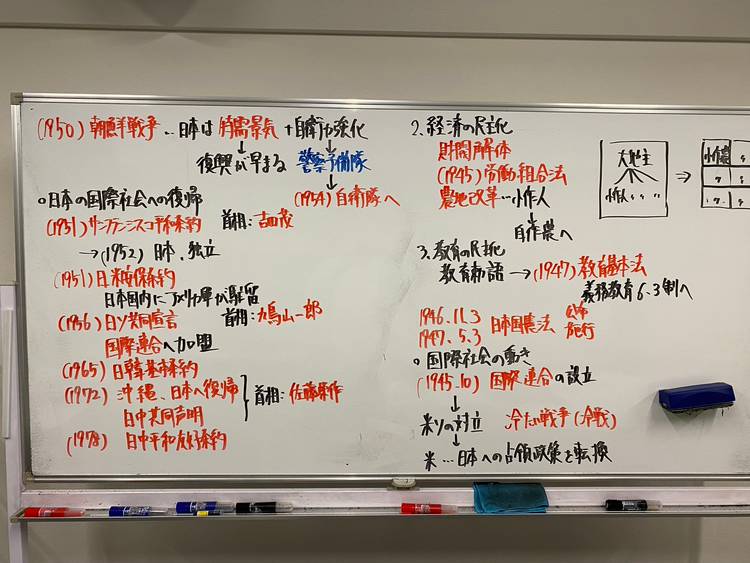 (1950) 朝鮮戦争 … 日本は 特需景気 + 自衛力強化
復興が早まる 警察予備隊
(1954) 自衛隊へ
○日本の国際社会への復帰
(1951) サンフランシスコ平和条約 首相:吉田茂
→(1952) 日本、独立
(1951) 日米安保条約
日本国内にアメリカ軍が駐留
(1956) 日ソ共同宣言 首相:鳩山一郎
国際連合へ加盟
(1965) 日韓基本条約
(1972) 沖縄、日本へ復帰 首相:佐藤栄作
日中共同声明
(1978) 日中平和友好条約
2. 経済の民主化
財閥解体
(1945) 労働組合法
農地改革…小作人
↓
自作農へ
大地主
小作人 〃 〃 〃
⇒
小作農 〃
〃 〃
〃 〃
3. 教育の民主化
教育勅語 → (1947) 教育基本法
義務教育6、3制へ
1946.11.3 日本国憲法 公布
1947.5.3 施行
○国際社会の動き
(1945.10) 国際連合の設立
↓
米ソの対立 冷たい戦争(冷戦)
↓
米…日本への占領政策を転換